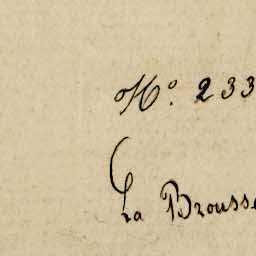 N°. 233
La Brousse